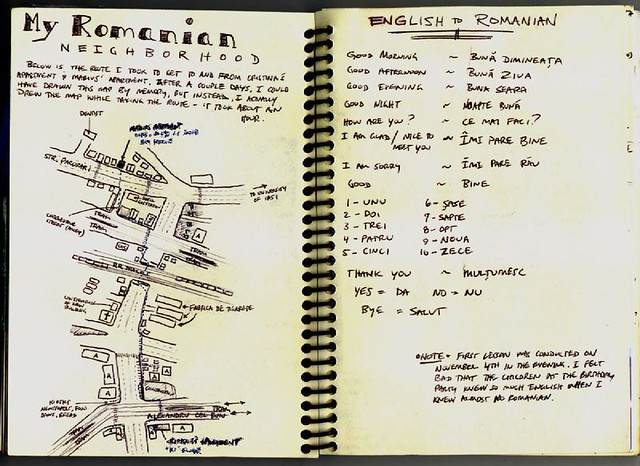 My Romanian
NEIGHBORHOOD
BELOW IS THE ROUTE I TOOK TO GET TO AND FROM CRISTINA'S
APARTMENT & MARIUS' APARTMENT. AFTER A COUPLE DAYS, I COULD
HAVE DRAWN THIS MAP BY MEMORY, BUT INSTEAD, I ACTUALLY
DREW THE MAP WHILE TAKING THE ROUTE - IT TOOK ABOUT AN
HOUR.
DENTIST
STR. PACURARI
TO UNIVERSITY
OF IASI
TRAM
TRAM
FABRICA DE TIGARETE
A
A
A
A
A
ALEXANDRU CEL BUN
ENGLISH TO ROMANIAN
GOOD MORNING ~ BUNĂ DIMINEAȚA
GOOD AFTERNOON ~ BUNĂ ZIUA
GOOD EVENING ~ BUNA SEARA
GOOD NIGHT ~ NOAPTE BUNĂ
HOW ARE YOU? ~ CE MAI FACI?
I AM GLAD / NICE TO MEET YOU ~ ÎMI PARE BINE
I AM SORRY ~ ÎMI PARE RĂU
GOOD ~ BINE
1 - UNU 6 - ȘASE
2 - DOI 7 - SAPTE
3 - TREI 8 - OPT
4 - PATRU 9 - NOUA
5 - CINCI 10 - ZECE
THANK YOU ~ MULȚUMESC
YES = DA NO = NU
BYE = SALUT
*NOTE* FIRST LESSON WAS CONDUCTED ON
NOVEMBER 4TH IN THE EVENING. I FELT
BAD THAT THE CHILDREN AT THE BIRTHDAY
PARTY KNEW SO MUCH ENGLISH WHEN I
KNEW ALMOST NO ROMANIAN.